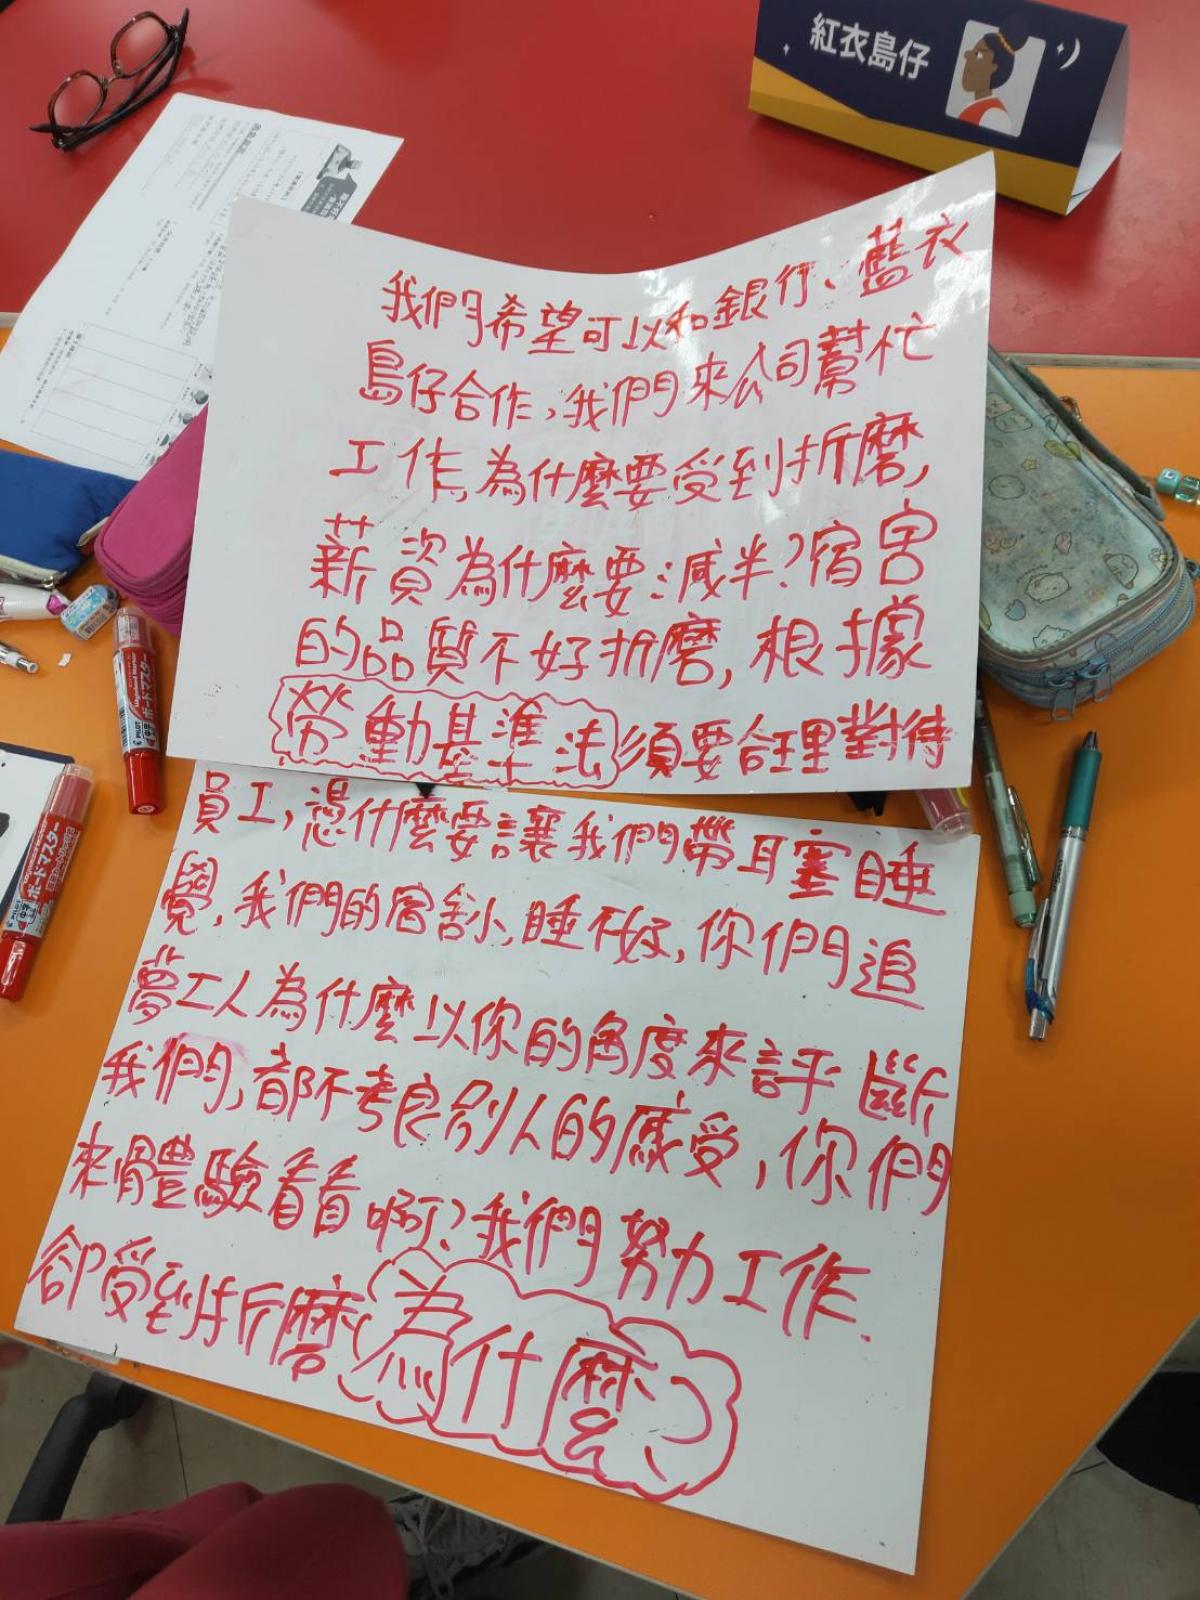 紅衣島仔
我們希望可以和銀行、藍衣
島仔合作,我們來公司幫忙
工作,為什麼要受到折磨,
薪資為什麼要減半?宿舍
的品質不好折磨,根據
勞動基準法須要合理對待
員工,憑什麼要讓我們帶耳塞睡
覺,我們的宿舍小,睡不好,你們追
夢工人為什麼以你的角度來評斷
我們,都不考良別人的感受,你們
來體驗看看啊?我們努力工作.
卻受到折磨為什麼?
PILOT
ボードマスター
PILOT
ボードマスター